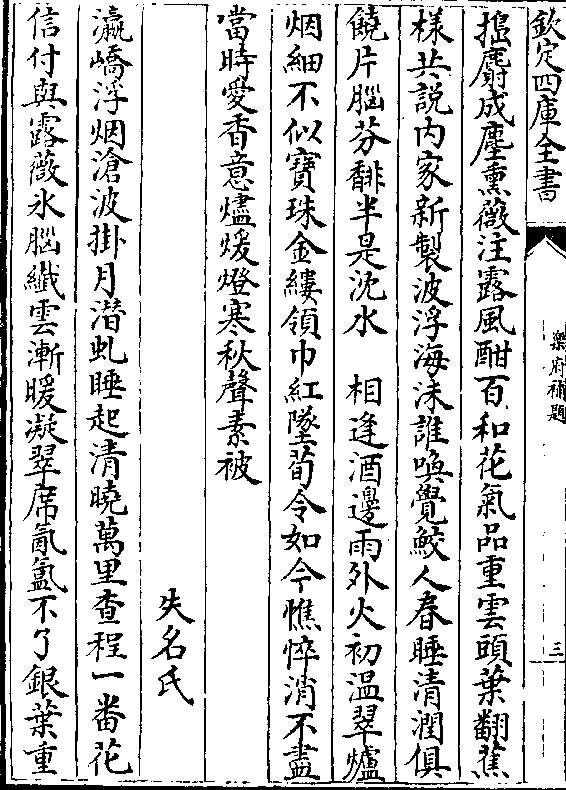 欽定四庫全書
樂府補題
三
搗麝成塵薰薇注露風酣百和花氣品重雲頭葉翻蕉
様共説内家新製波浮海沫誰喚覺鮫人春睡清潤俱
饒片腦芬馡半是沈水 相逢酒邊雨外火初温翠爐
烟細不似寶珠金縷領巾紅墜荀令如今憔悴消不盡
當時愛香意燼煖燈寒秋聲素被
失名氏
瀛嶠浮烟滄波掛月潜虬睡起清曉萬里查程一番花
信付與露薇氷腦纎雲漸暖凝翠席氤氲不了銀葉重